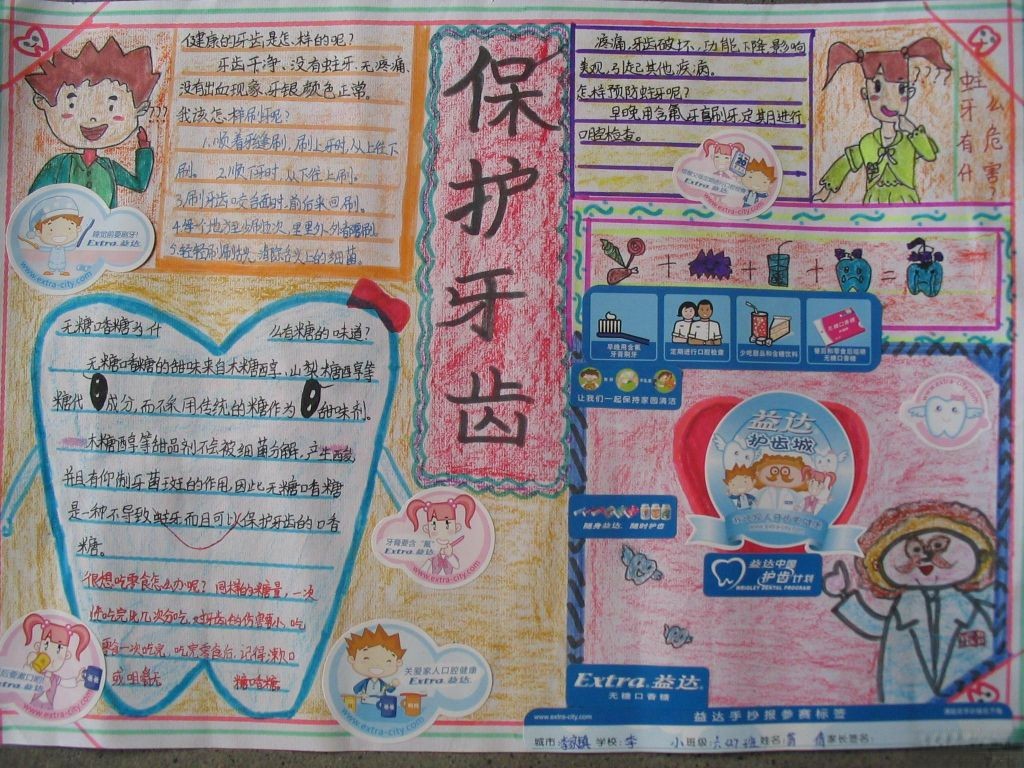 健康的牙齿是怎样的呢?
牙齿干净、没有蛀牙、无疼痛、
没有出血现象、牙银颜色正常。
我该怎样刷牙呢?
1.顺着牙缝刷,刷上牙时,从上往下
刷。 2.顺下牙时,从下往上刷。
3.刷牙齿咬合面时,前后来回刷。
4.每个地方至少刷10次,里里外外都要刷
5.轻轻刷刷舌头,清除舌头上的细菌。
???
睡觉前要刷牙!
Extra益达
www.extra-city.com
保护牙齿
疼痛,牙齿破坏,功能下降,影响
美观,引起其他疾病。
怎样预防蛀牙呢?
早晚用含氟牙膏刷牙定期进行
口腔检查。
Extra益达
www.extra-city.com
????
蛀牙有什
么危害?
+ + + =
早晚用含氟
牙膏刷牙
定期进行口腔检查
少吃甜品和含糖饮料
餐后和零食后咀嚼
无糖口香糖
让我们一起保持家园清洁
无糖口香糖为什么有糖的味道?
无糖口香糖的甜味来自木糖醇,山梨糖醇等
糖代成分,而不采用传统的糖作为甜味剂。
木糖醇等甜品剂不会被细菌分解,产生酸,
并且有仰制牙菌斑的作用,因此无糖口香糖
是一种不导致蛀牙而且可以保护牙齿的口香
糖。
很想吃零食怎么办呢? 同样的糖量,一次
吃完比几次分吃,对牙齿的伤害要小,吃
零食一次吃完,吃完零食后,记得漱口
或咀嚼无糖口香糖。
牙膏要含“氟”
Extra益达
www.extra-city.com
后要漱口哦!
Extra益达
www.extra-city.com
关爱家人口腔健康
Extra益达
www.extra-city.com
益达
护齿城
随身益达,随时护齿
益达中国
护齿计划
WRIGLEY DENTAL PROGRAM
Extra益达
无糖口香糖
www.extra-city.com
益达手抄报参赛标签
城市: 学校:李 小 班级:六(4)班 姓名: 倩 家长签名: